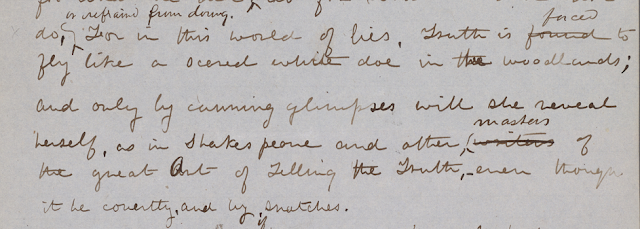 or refrained from doing.
forced
do, For in this world of lies, Truth is found to
fly like a scared white doe in the woodlands;
and only by cunning glimpses will she reveal
herself, as in Shakespeare and other
masters
writers of
the great Art of Telling the Truth, – even though
it be covertly, and by snatches.